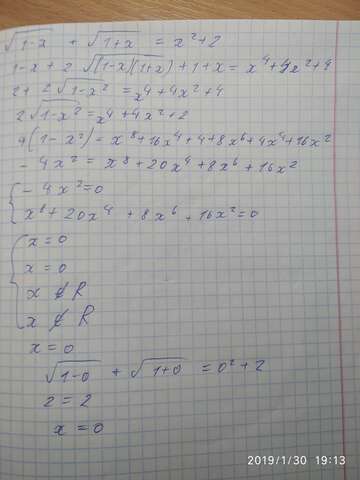 √1-x + √1+x = x²+2
1-x + 2 √(1-x)(1+x) + 1+x = x⁴+4x²+4
2+ 2√1-x² = x⁴+4x²+4
2√1-x² = x⁴+4x²+2
4(1-x²) = x⁸+16x⁴+4+8x⁶+4x⁴+16x²
-4x² = x⁸+20x⁴+8x⁶+16x²
-4x²=0
x⁸+20x⁴ +8x⁶+16x²=0
x=0
x=0
x ∉ R
x ∉ R
x=0
√1-0 + √1+0 = 0²+2
2=2
x=0
2019/1/30 19:13